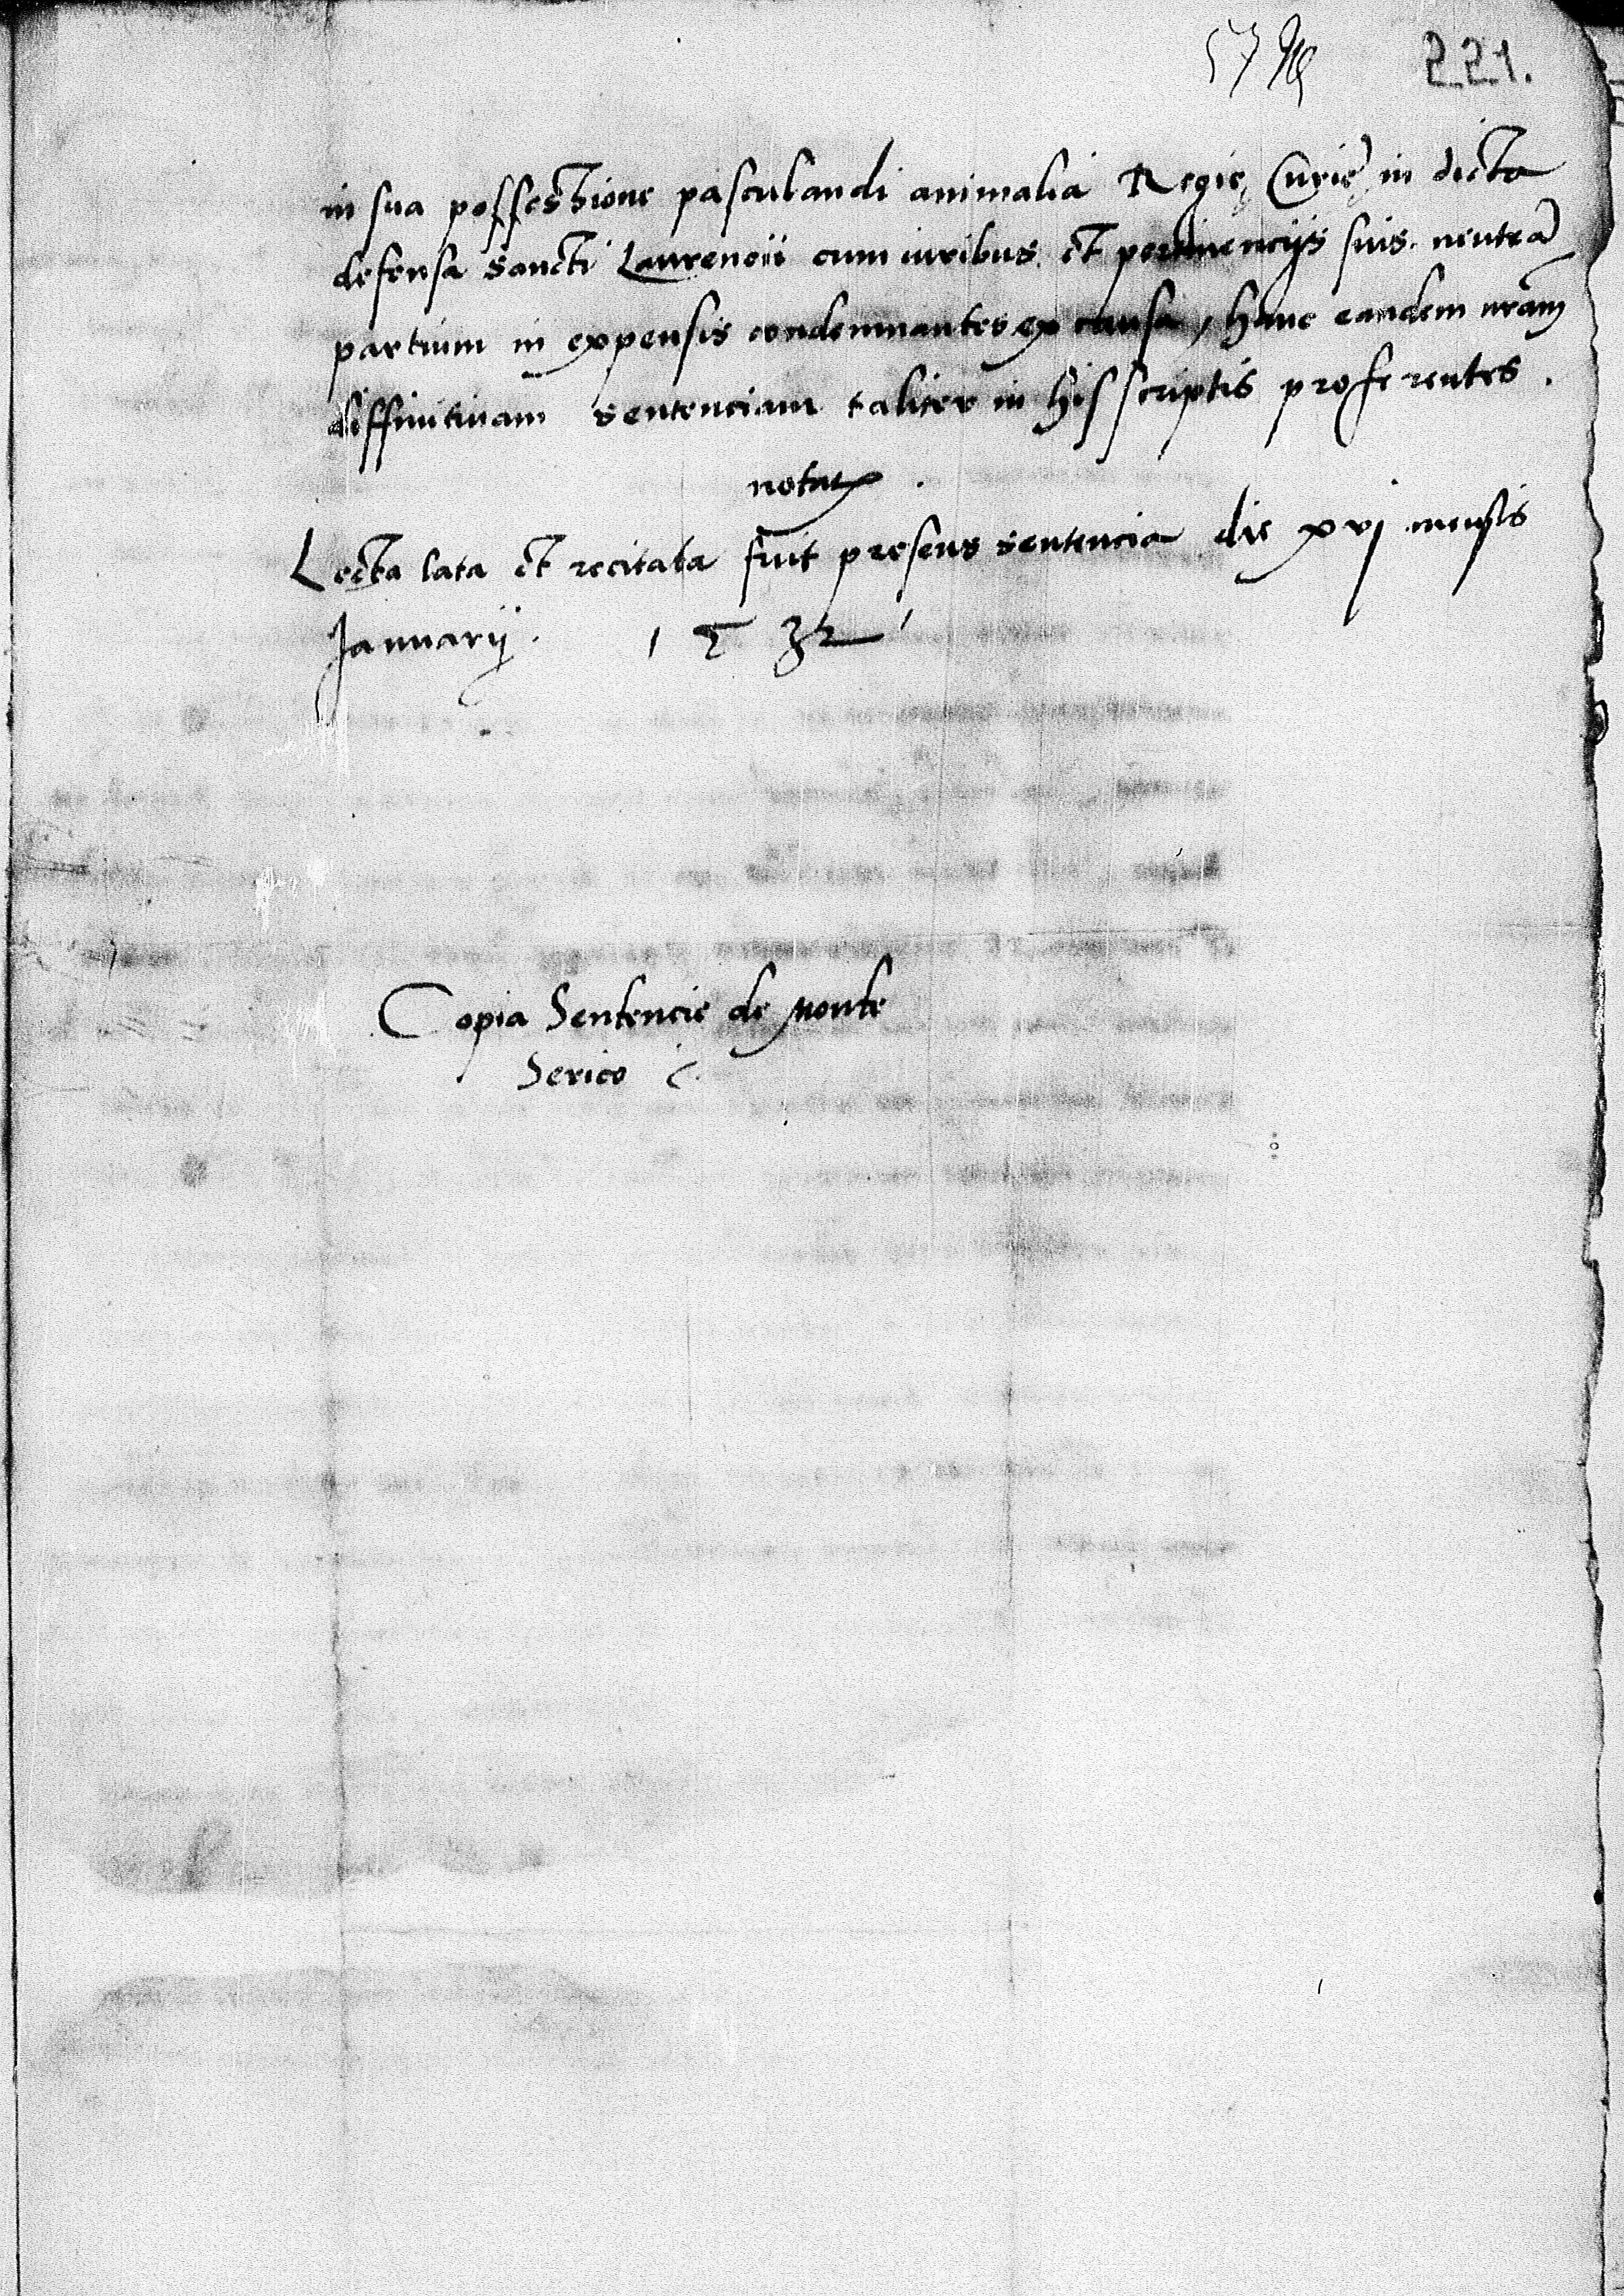 221.
in sua possessione pasculandi animalia Regie Curie in dicta
defensa sancti Laurencii cum iuribus et pertinencijs suis. neutra
partium in expensis condemnantes ex causa, hanc eandem nram
diffinitivam sentenciam taliter in his scriptis proferentes.
Lecta lata et recitata fuit presens sentencia die xvj mensis
Januarij. 1532
Copia Sentencie de Monte
Serico